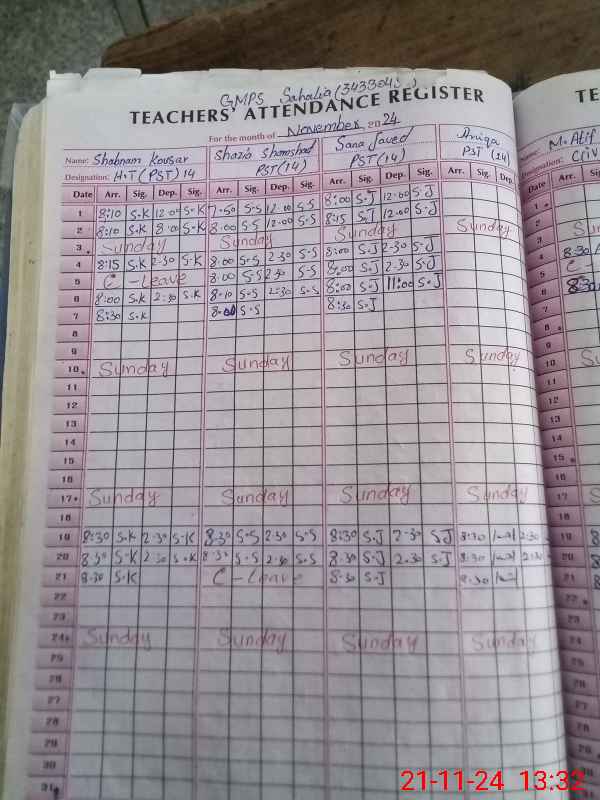 GMPS Sahalia (3433045)
TEACHERS' ATTENDANCE REGISTER
For the month of November, 2024
Name: Shabnam Kousar Shazia Shamshad Sana Javed Aniqa M. Atif
Designation: H.T (PST) 14 PST (14) PST (14) PST (14)
Date Arr. Sig. Dep. Sig. Arr. Sig. Dep. Sig. Arr. Sig. Dep. Sig. Arr. Sig. Dep.
1 8:10 S.K 12:00 S.K 7:50 S.S 12:00 S.S 8:00 S.J 12:00 S.J
2 8:10 S.K 8:00 S.K 8:00 S.S 12:00 S.S 8:15 S.J 12:00 S.J
3 Sunday Sunday Sunday Sunday
4 8:15 S.K 2:30 S.K 8:00 S.S 2:30 S.S 8:00 S.J 2:30 S.J
5 C-Leave 8:00 S.S 2:30 S.S 8:00 S.J 2:30 S.J
6 8:00 S.K 2:30 S.K 8:10 S.S 2:30 S.S 8:00 S.J 11:00 S.J
7 8:30 S.K 8:00 S.S 8:30 S.J
8
9
10 Sunday Sunday Sunday Sunday
11
12
13
14
15
16
17 Sunday Sunday Sunday Sunday
18
19 8:30 S.K 2:30 S.K 8:30 S.S 2:30 S.S 8:30 S.J 2:30 S.J 8:30 2:30
20 8:30 S.K 2:30 S.K 8:30 S.S 2:30 S.S 8:30 S.J 2:30 S.J 8:30 2:30
21 8:30 S.K C-Leave 8:30 S.J 8:30
22
23
24 Sunday Sunday Sunday Sunday
25
26
27
28
29
30
31
21-11-24 13:32